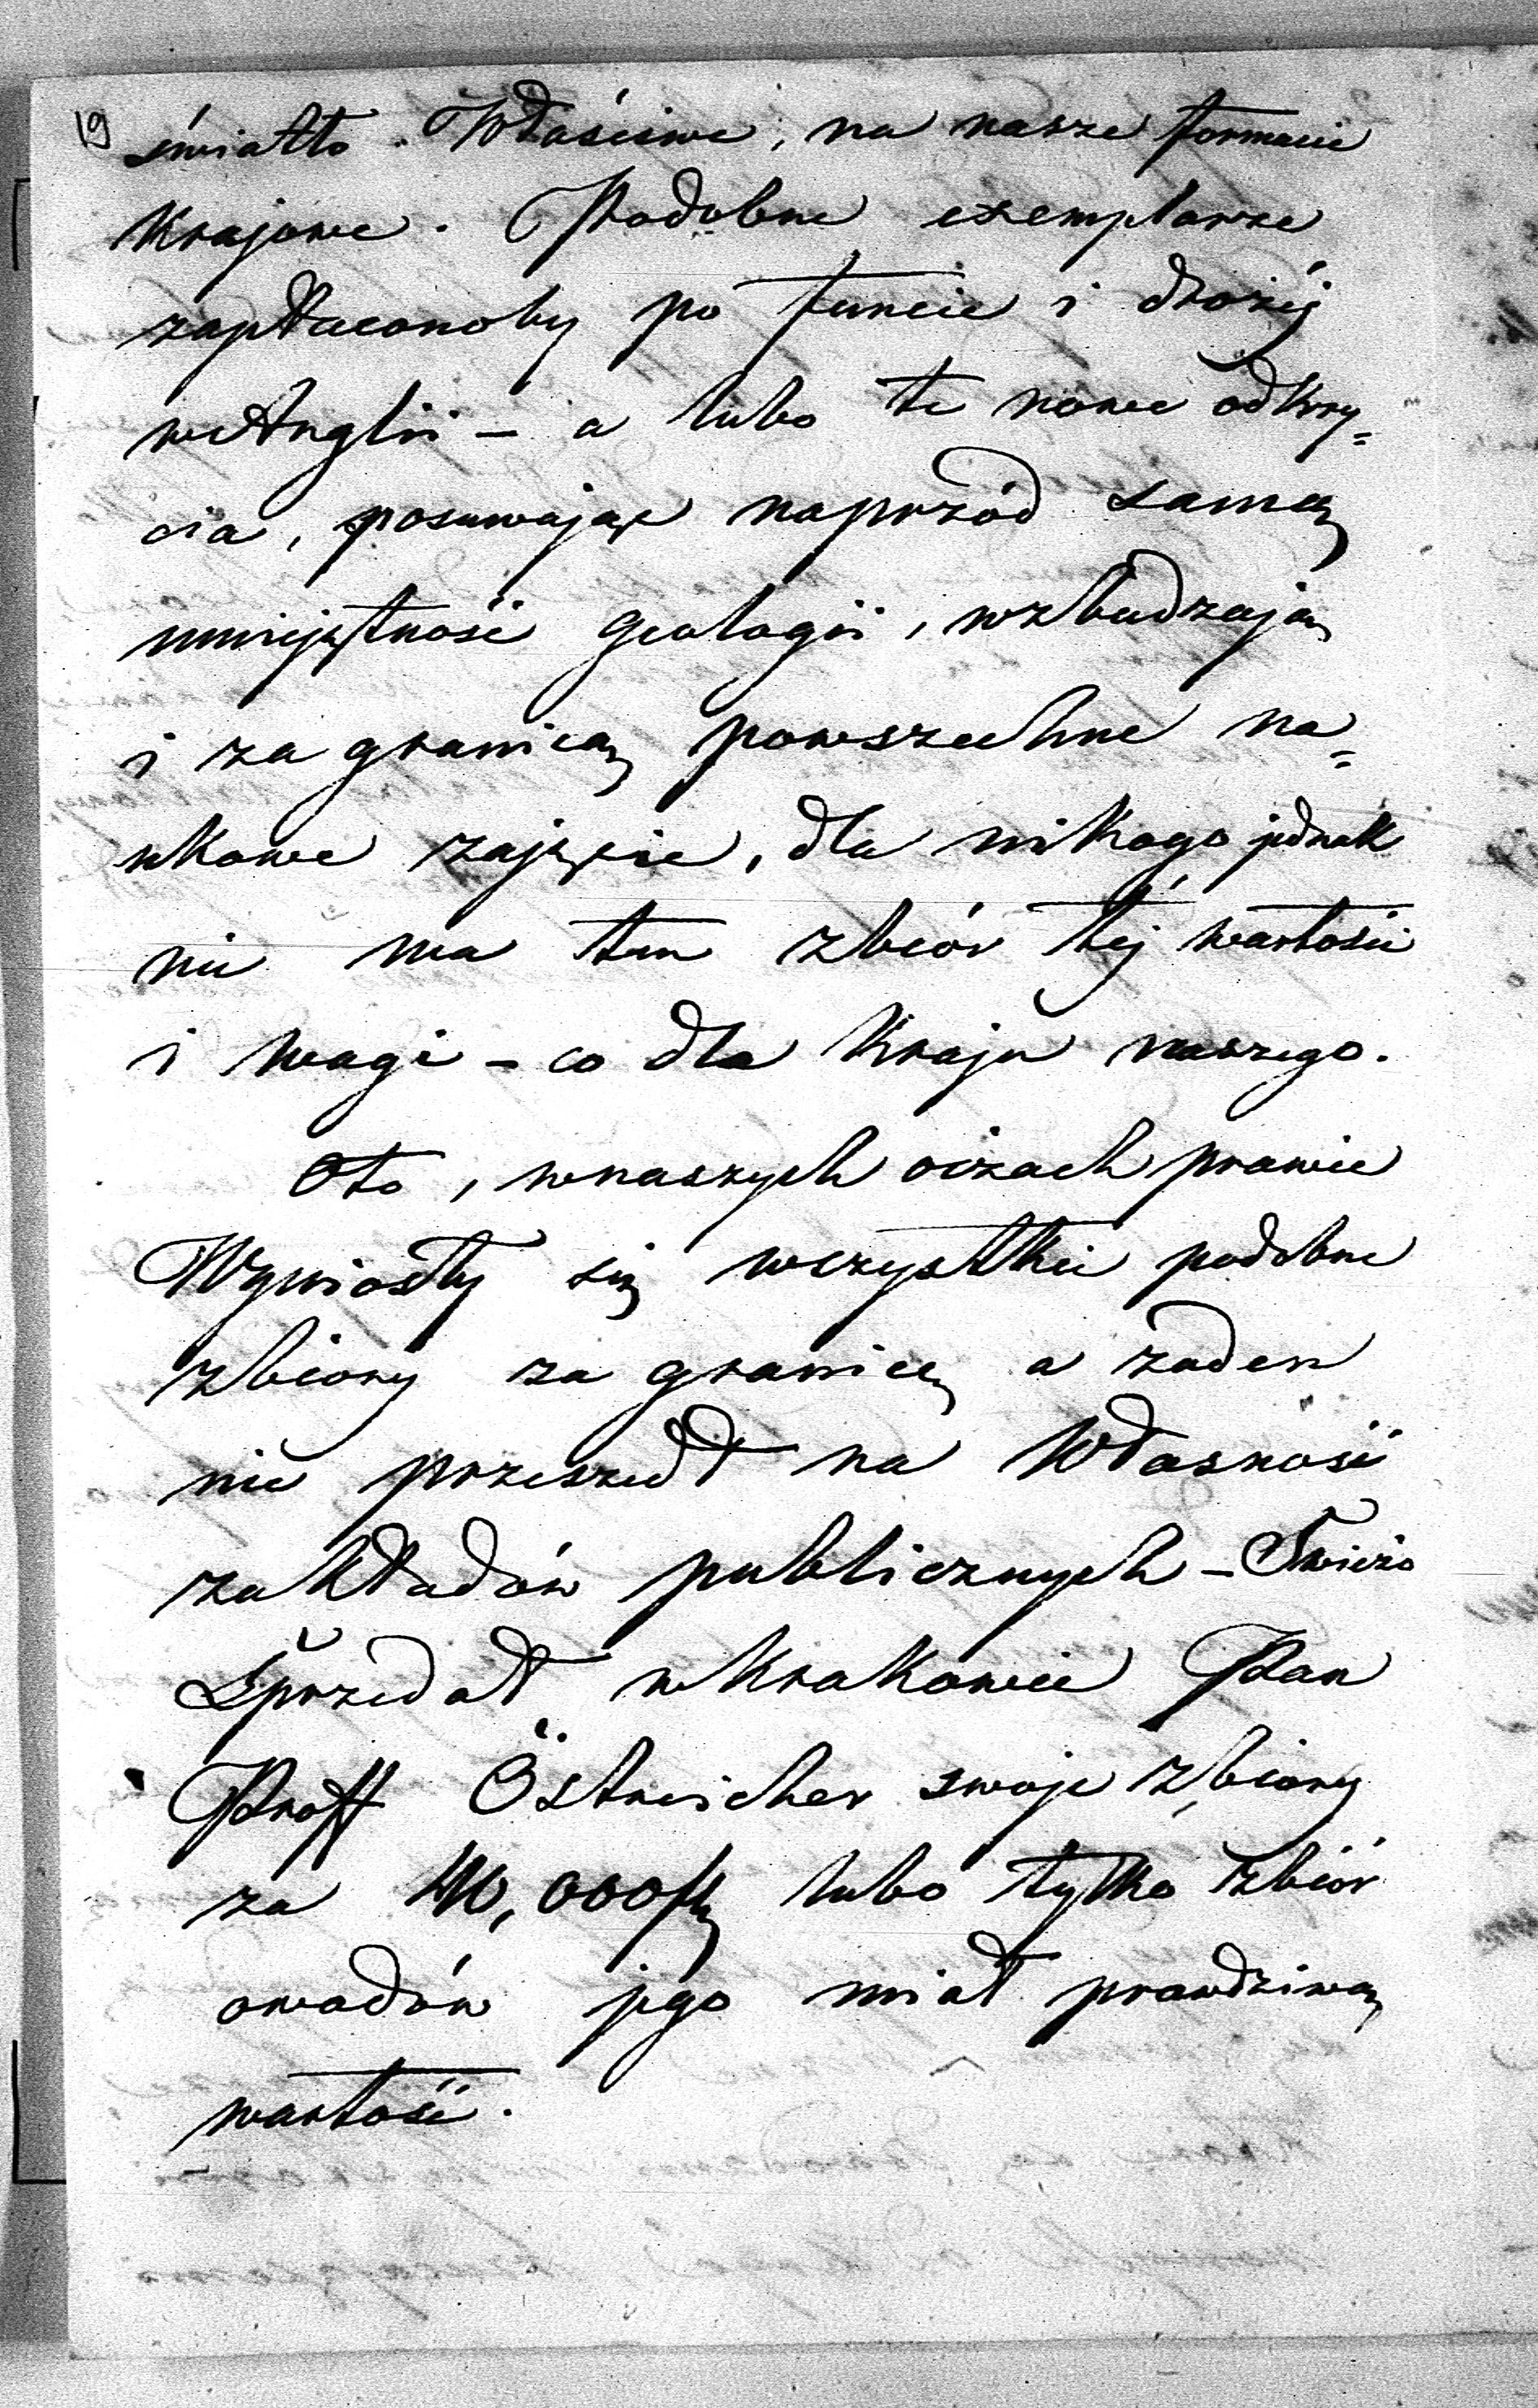 19
światło. Właściwe, na nasze formacie
Krajowe. Podobne exemplarze
zapłaconoby po funcie i drożéj
w Anglii – a lubo te nowe odkry=
cia, posuwając naprzód samą
umiejętność geologii, wzbudzają
i za granicą powszechne na=
ukowe zajęcie, dla nikogo jednak
nie ma ten zbiór téj wartości
i wagi – co dla Kraju naszego.
Oto, w naszych oczach prawie
Wyniosły się wszystkie podobne
zbiory za granicę a żaden
nie przeszedł na Własność
zakładów publicznych – Swieżo
Sprzedał w Krakowie Pan
Proff Östreicher swoje zbiory
za 40,000 lubo tylko zbiór
owadów jego miał prawdziwą
wartość.